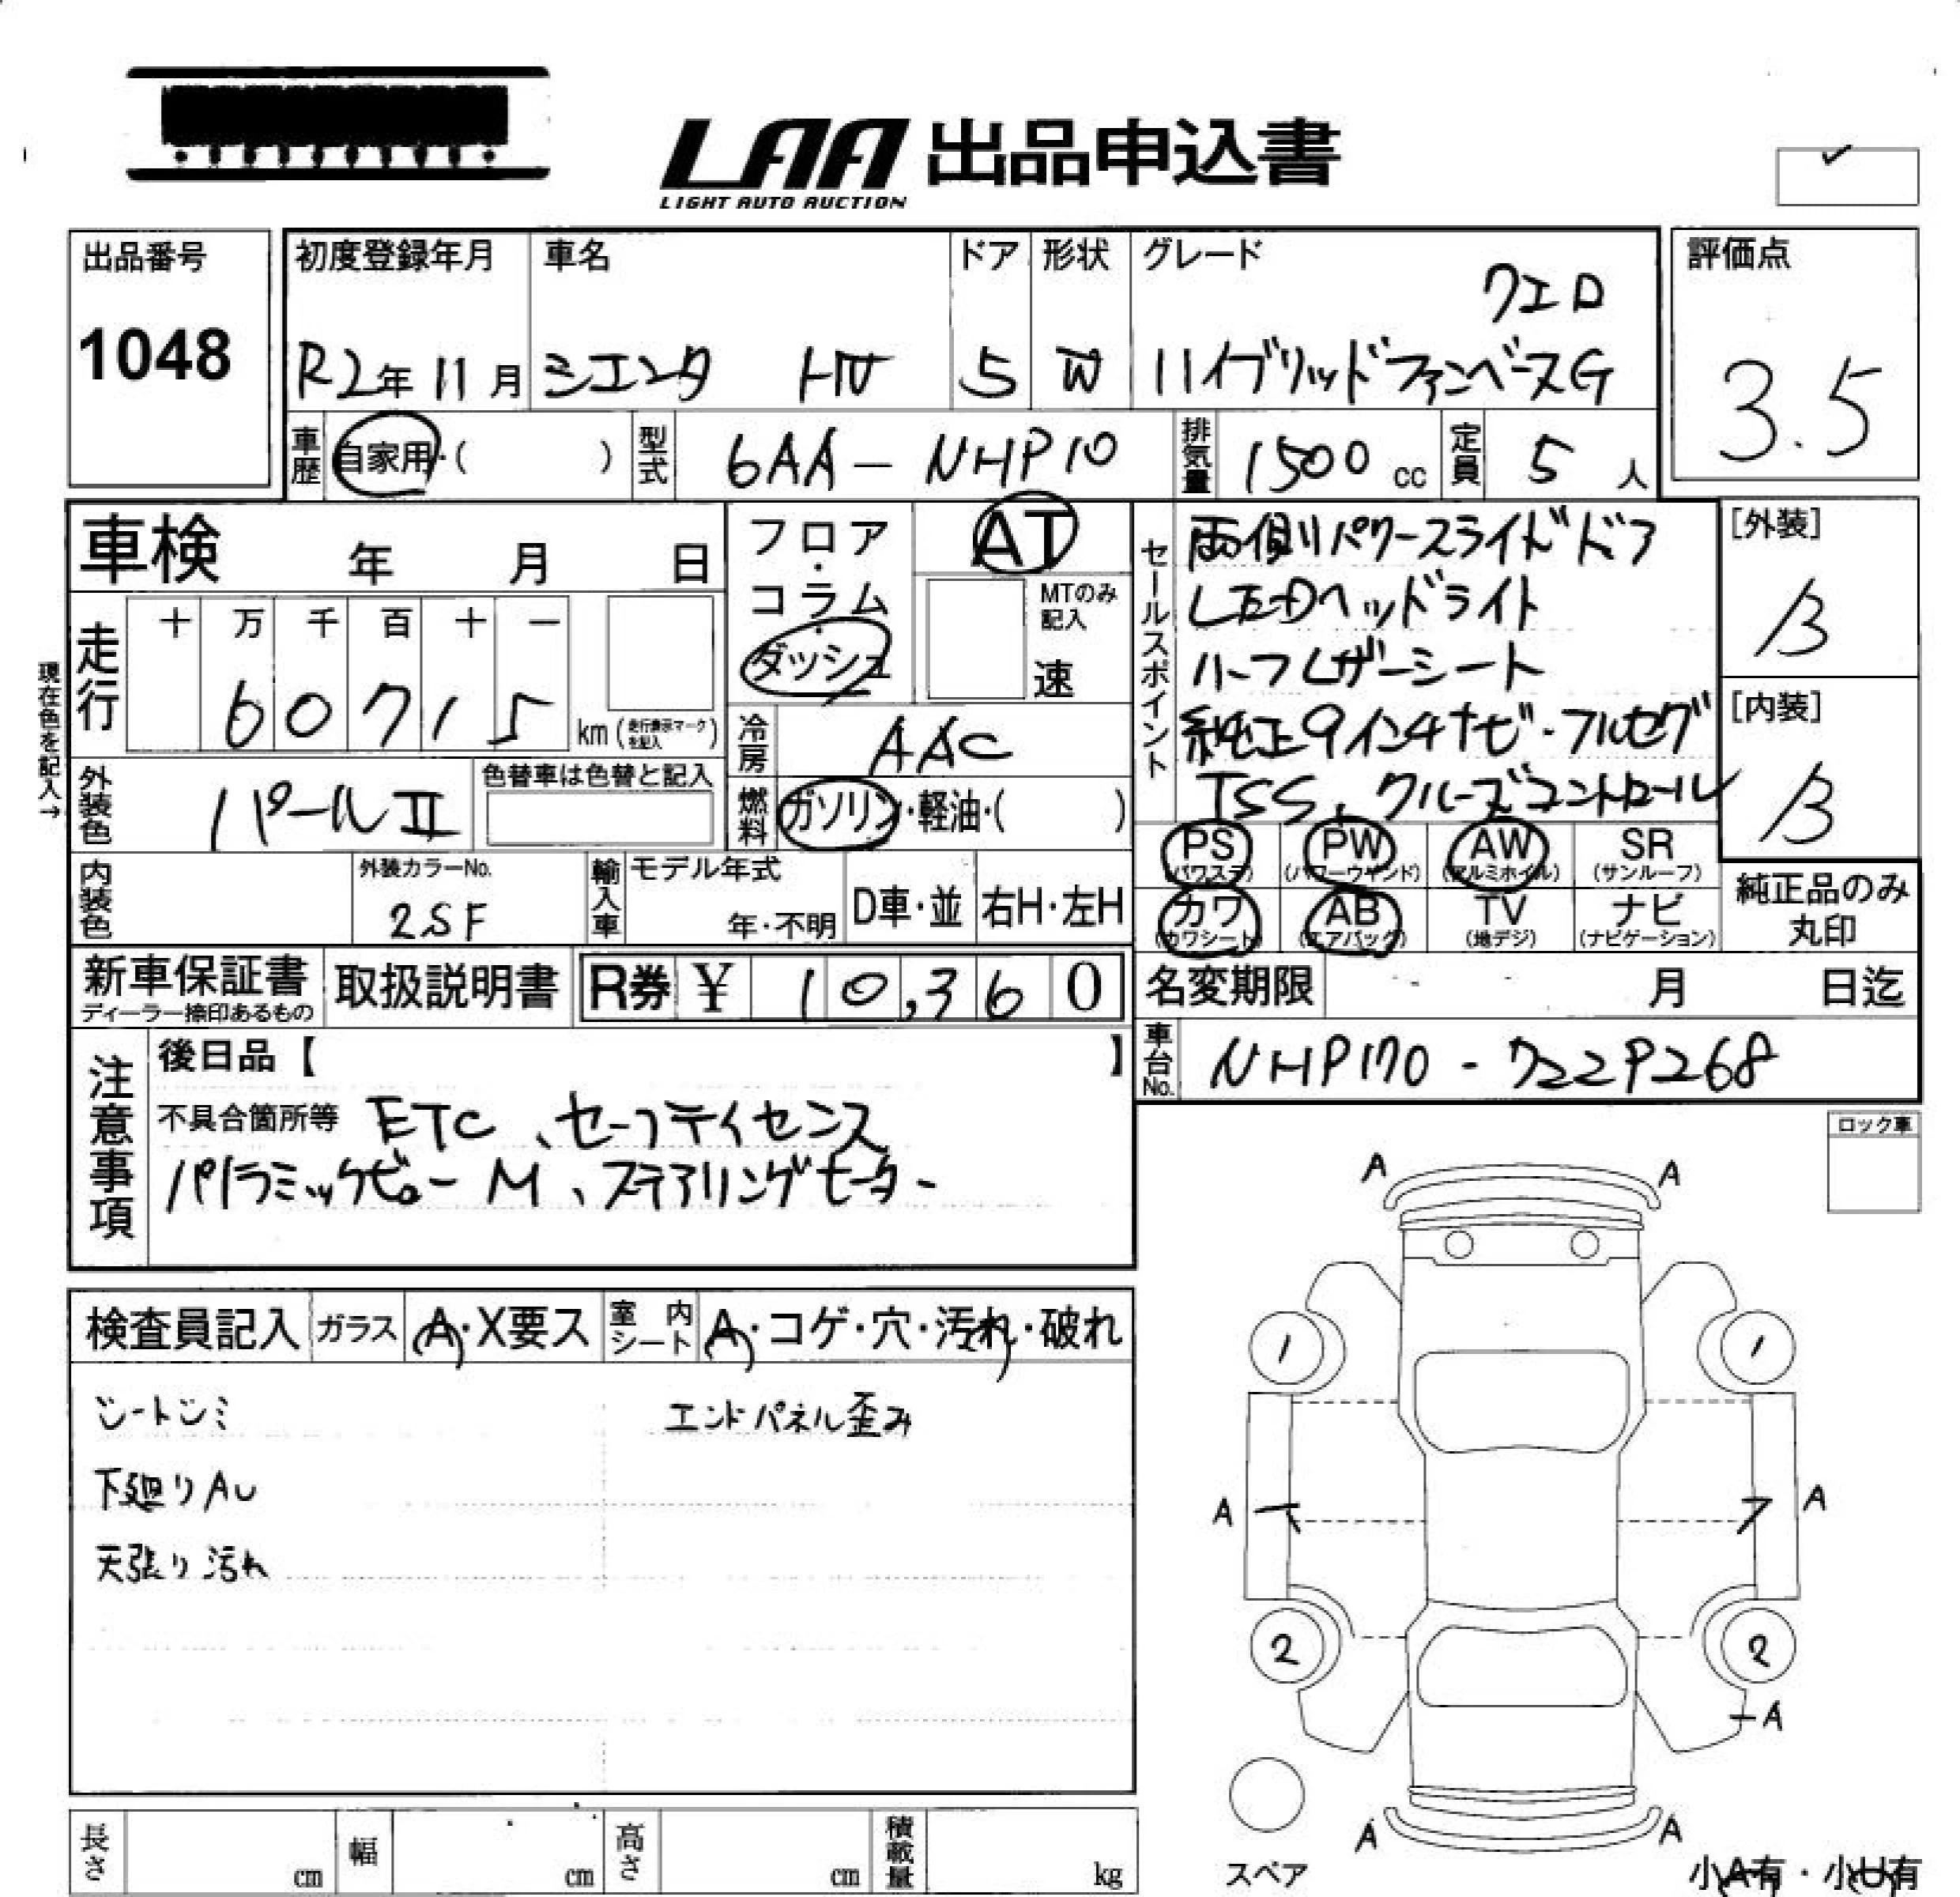 LAA 出品申込書
LIGHT AUTO AUCTION
出品番号
1048
初度登録年月
R2年11月
車名
シエンタ HV
ドア
5
形状
W
グレード
クエロ
ハイブリッドファンベースG
評価点
3.5
車歴
自家用・( )
型式
6AA-NHP10
排気量
1500cc
定員
5人
車検 年 月 日
走行
十 万 千 百 十 一
60715
km(走行表示マークを記入)
現在色を記入→
外装色
パールⅡ
色替車は色替と記入
内装色
外装カラーNo.
2SF
フロア・コラム・ダッシュ
AT
MTのみ記入
速
冷房
AAC
燃料
ガソリン・軽油・( )
輸入車
モデル年式
年・不明
D車・並
右H・左H
セールスポイント
両側パワースライドドア
LEDヘッドライト
ハーフレザーシート
純正9インチナビ・フルセグ
TSS、クルーズコントロール
[外装]
B
[内装]
B
PS PW AW SR
(パワステ) (パワーウインド) (アルミホイル) (サンルーフ)
カワ AB TV ナビ
(カワシート) (エアバッグ) (地デジ) (ナビゲーション)
純正品のみ
丸印
新車保証書
ディーラー捺印あるもの
取扱説明書
R券 ¥ 10,360
名変期限 月 日迄
車台No.
NHP170-7229268
注意事項
後日品【 】
不具合箇所等 ETC、セーフティセンス
パノラミックビューM、ステアリングヒーター
ロック車
検査員記入
ガラス
A・X要ス
室内シート
A・コゲ・穴・汚れ・破れ
シートシミ
エンドパネル歪み
下廻りAU
天張り汚れ
A A
1 1
A A
2 2
A
A A
スペア
小A有・小U有
長さ cm
幅 cm
高さ cm
積載量 kg